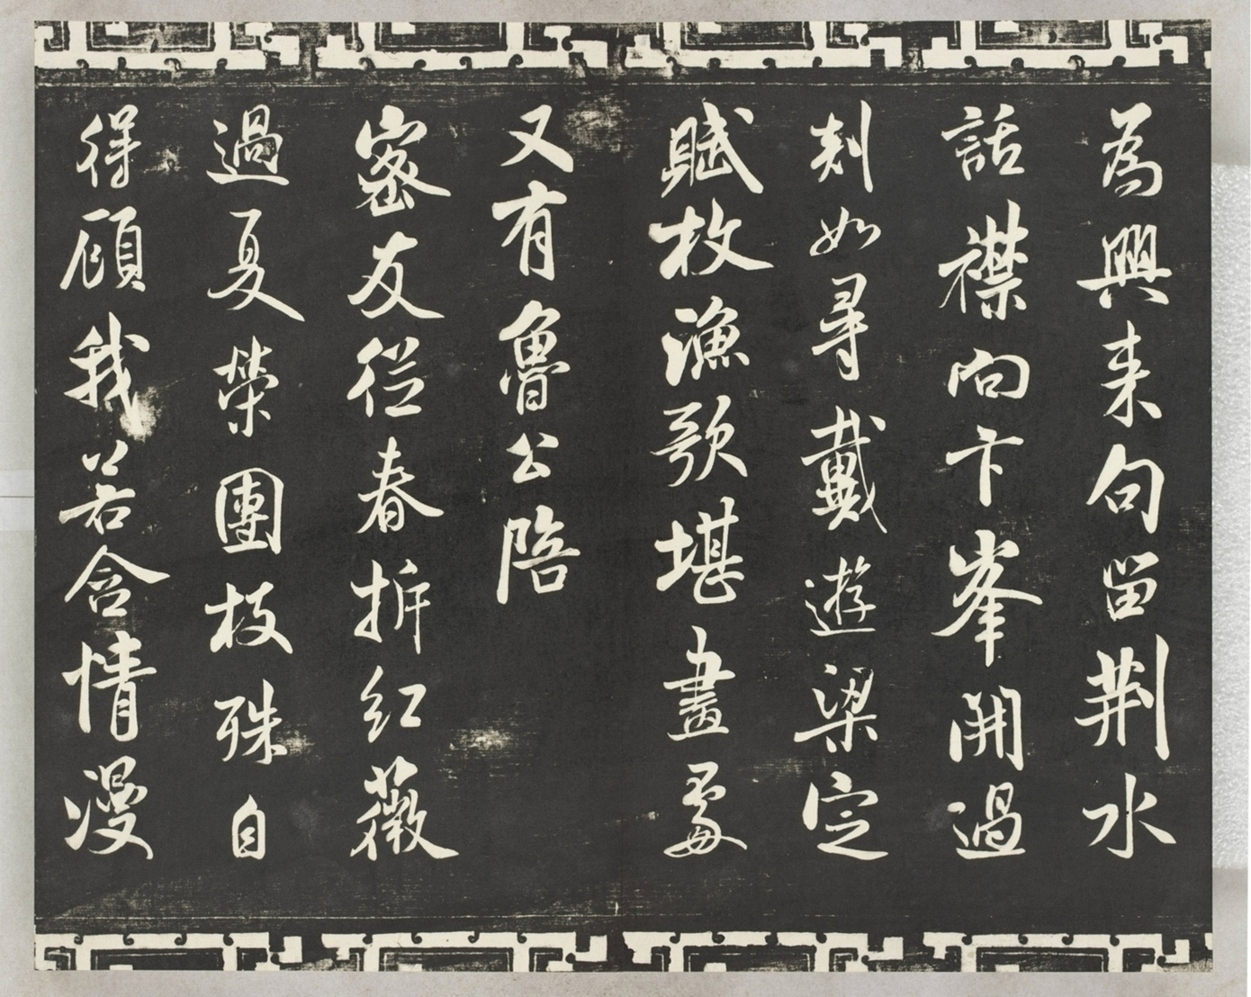 為興来句留荆水
話襟向卞峯開過
剡如尋戴遊梁定
賦枚漁歌堪畫處
又有魯公陪
密友從春拆紅薇
過夏榮團枝殊自
得顧我若含情漫